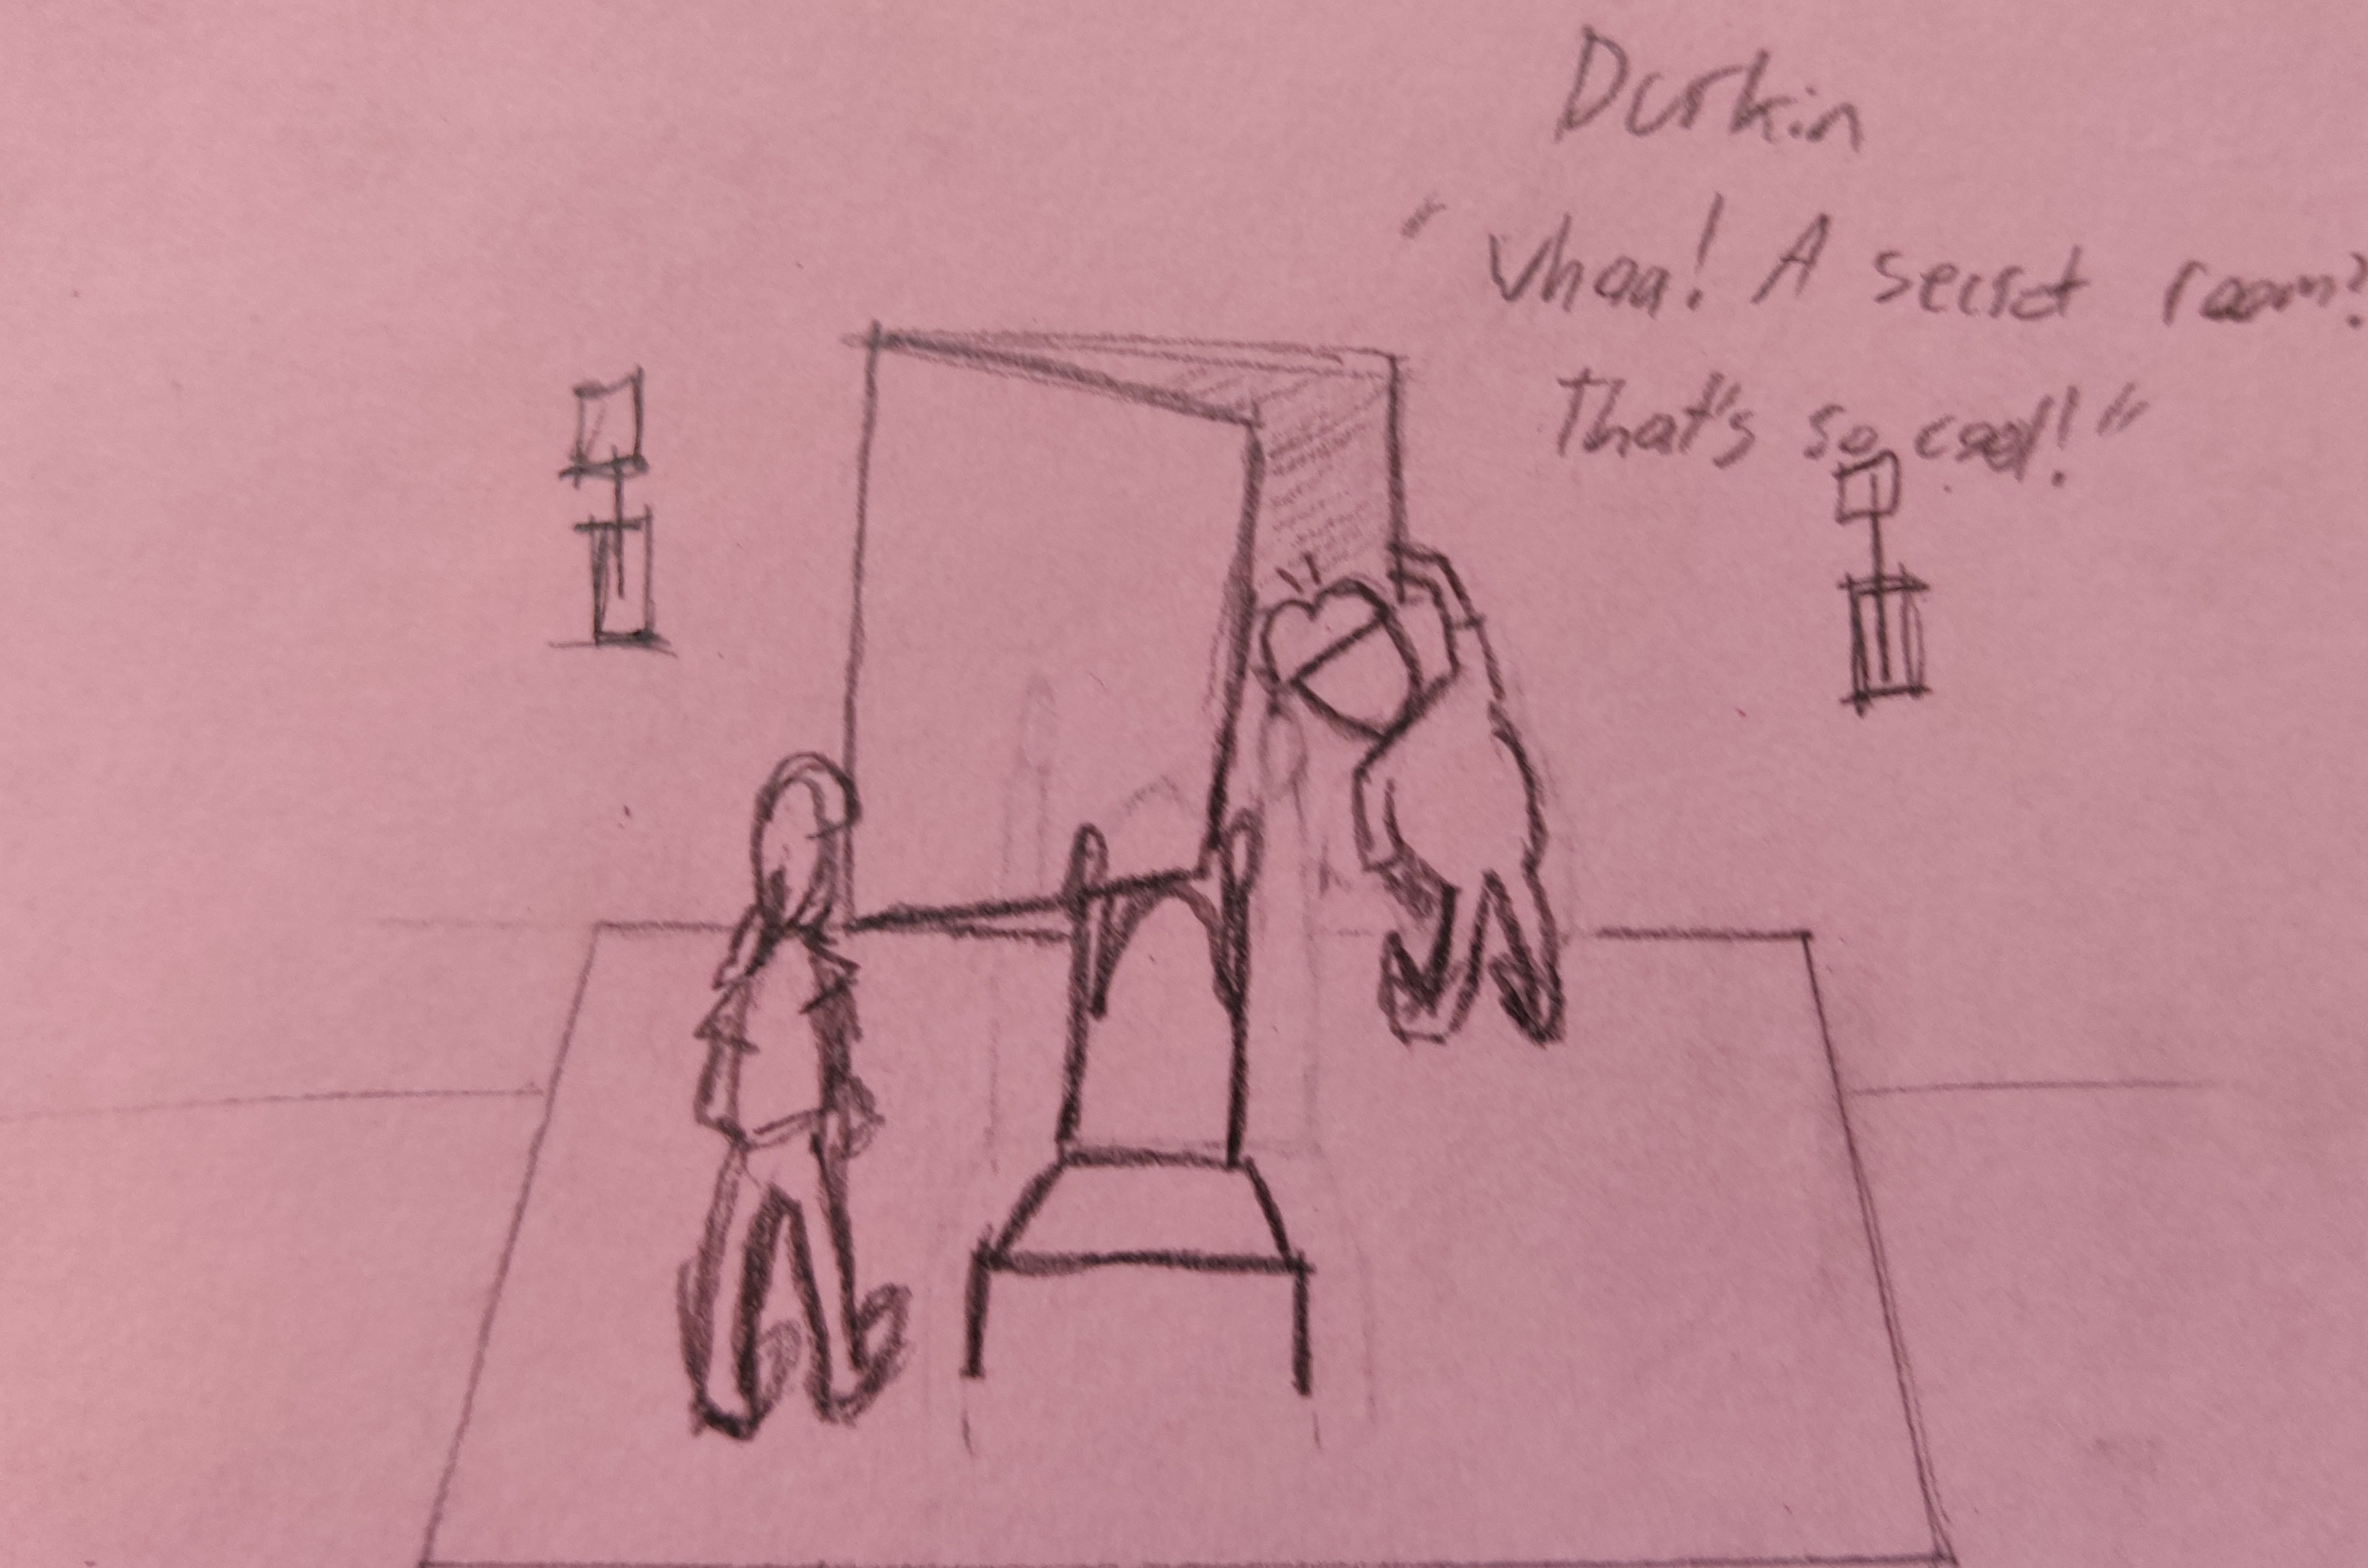 Durkin
"Whoa! A secret room?
That's so cool!"